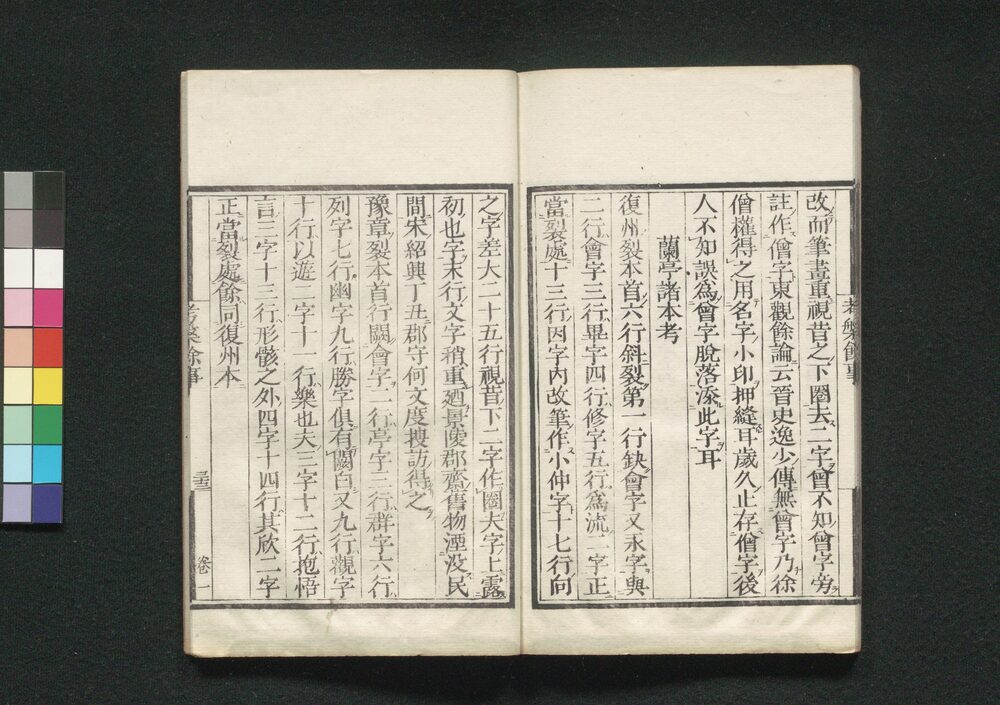 改而筆畫重視昔之下圈夫二字會不知會字旁
註作僧字東觀餘論云晉史逸少傳無曾字乃徐
僧權得之用名字小印押縫耳歲久止存僧字後
人不知誤為曾字脫落添此字耳
蘭亭諸本考
復州裂本首六行斜裂第一行缺會字又永字與
二行會字三行畢字四行修字五行為流二字正
當裂處十三行因字內改筆作小仲字十七行向
考槃餘事
之字差大二十五行視昔下二字作圈大字上露
初也字末行文字稍重廼景陵郡齋舊物湮没民
間宋紹興丁丑郡守何文度搜訪得之
豫章裂本首行闕會字二行亭字三行群字六行
列字七行幽字九行勝字俱有闕白又九行觀字
十行以遊二字十一行樂也夫三字十二行抱悟
言三字十三行形骸之外四字十四行其欣二字
正當裂處餘同復州本
考槃餘事
卷一